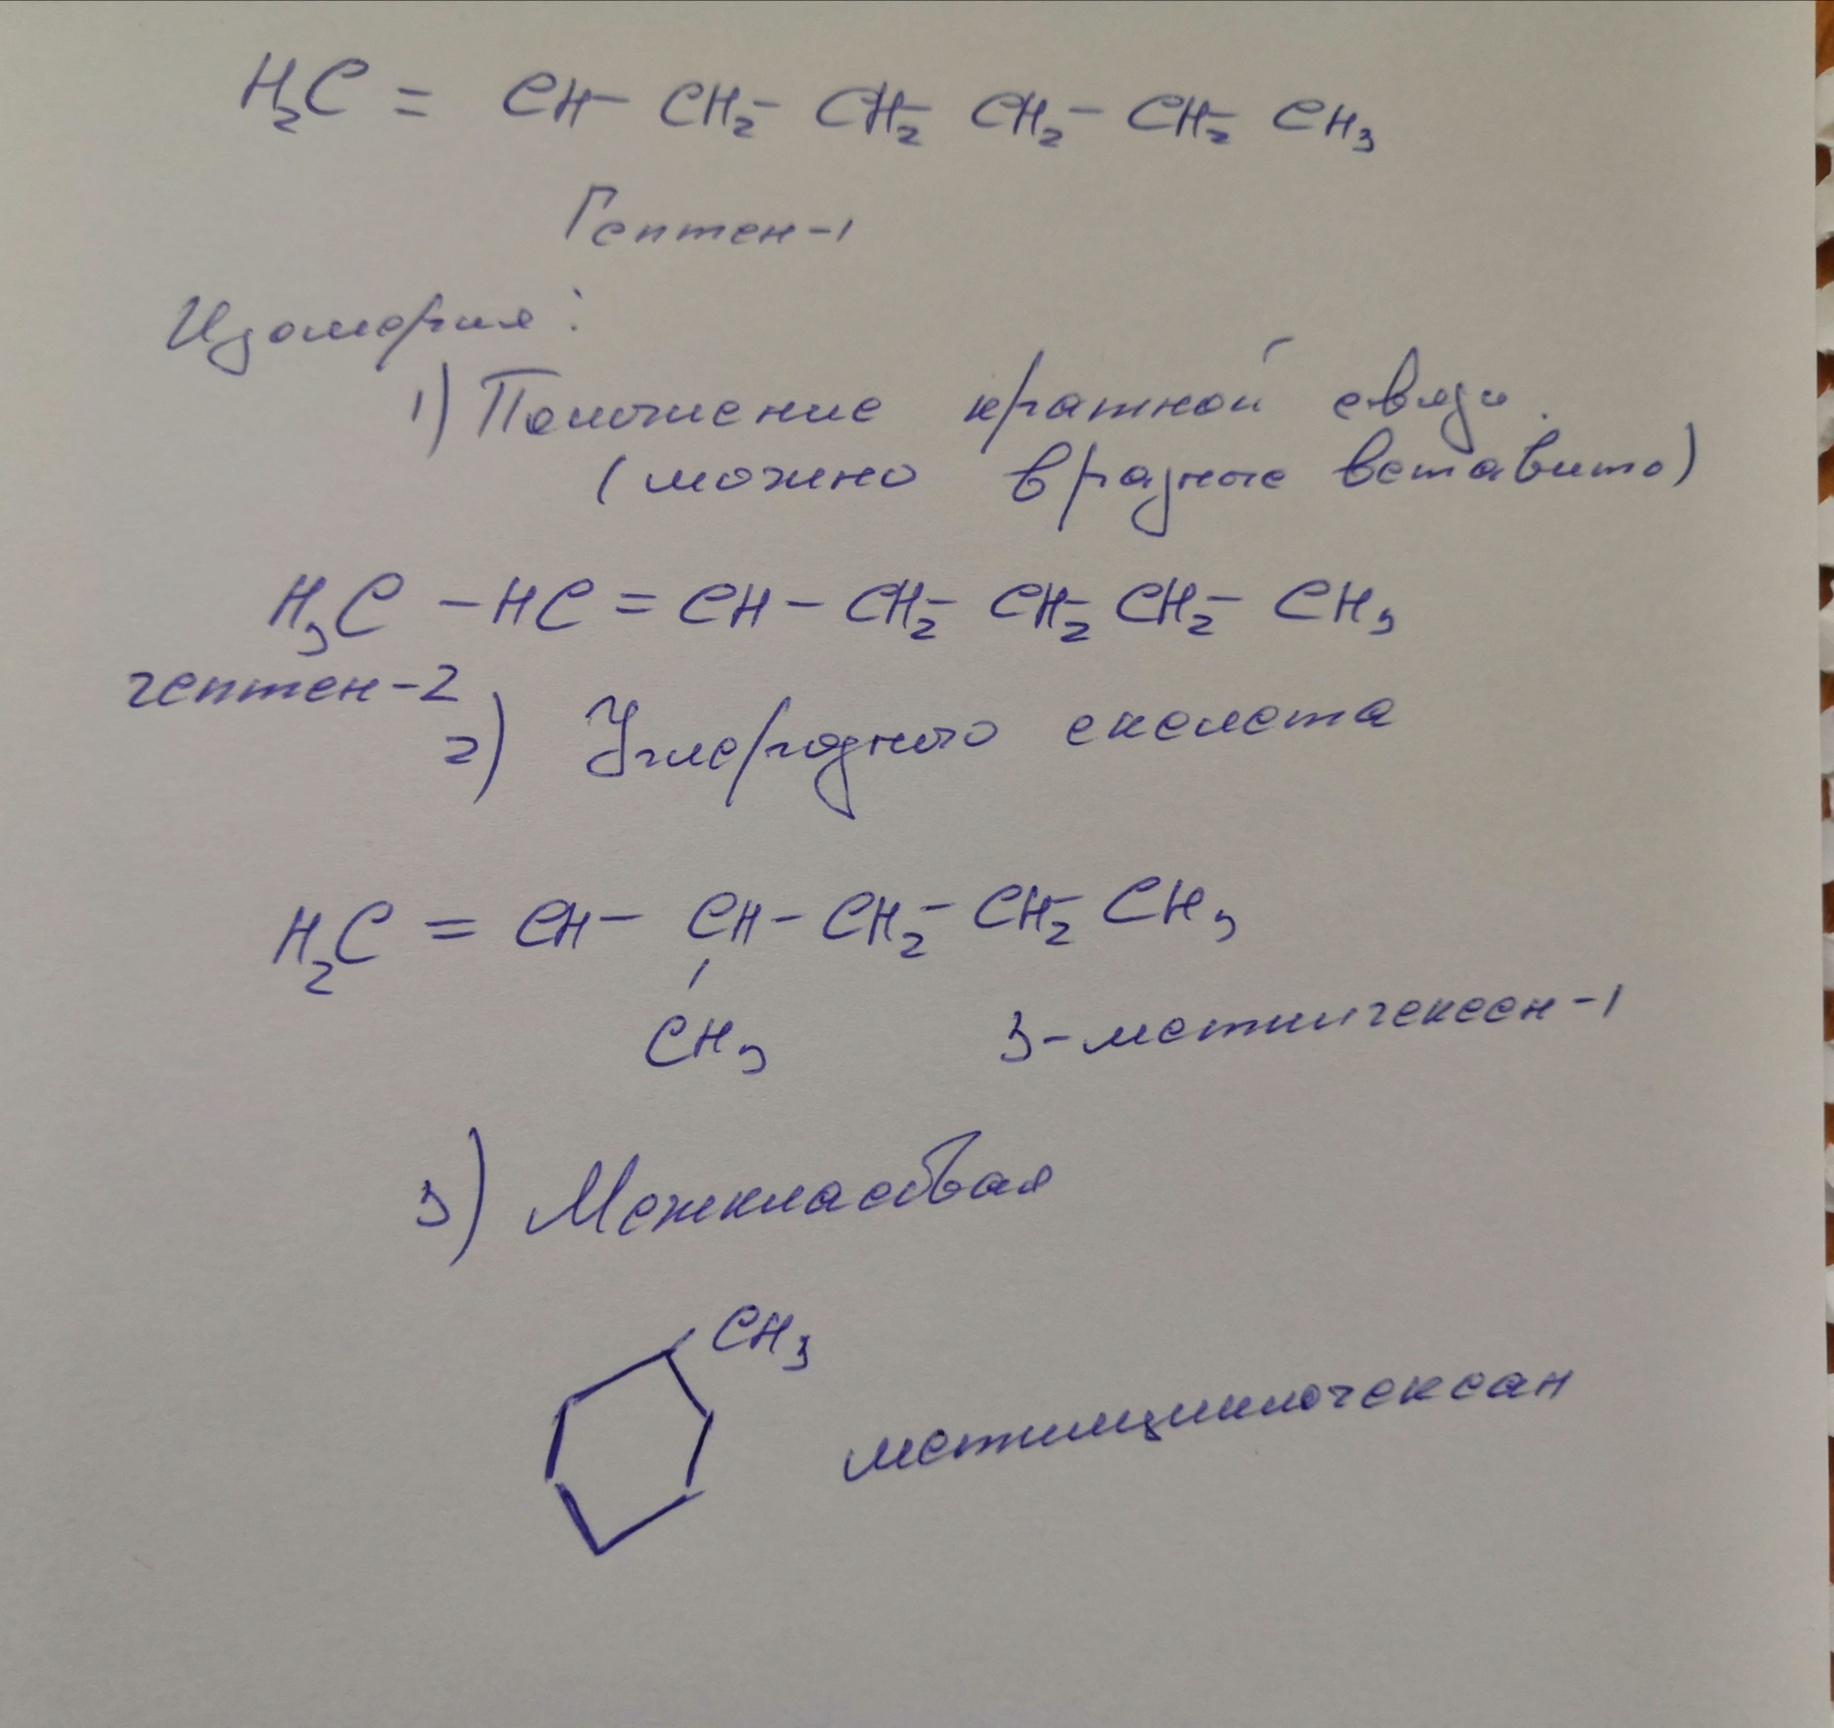 H₂C = CH – CH₂ – CH₂ – CH₂ – CH₂ – CH₃
Гептен-1
Изомерия:
1) Положение кратной связи.
(можно в разные вставить)
H₃C – HC = CH – CH₂ – CH₂ – CH₂ – CH₃
гептен-2
2) Углеродного скелета
H₂C = CH – CH – CH₂ – CH₂ – CH₃
CH₃
3-метилгексен-1
3) Межклассовая
CH₃
метилциклогексан